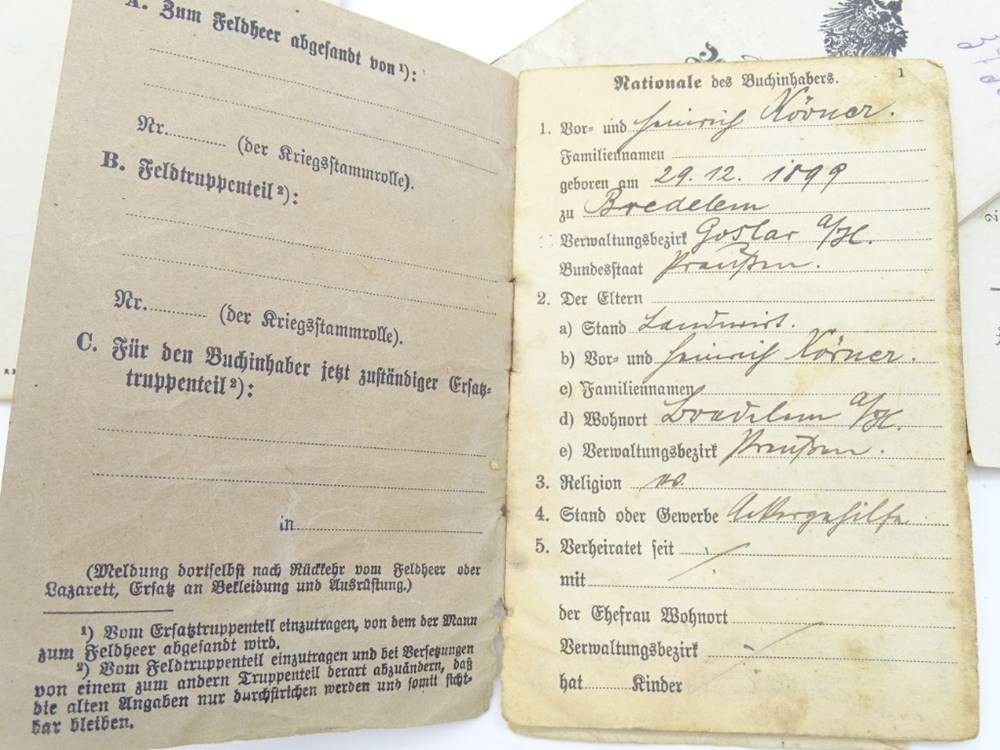 A. Zum Feldheer abgesandt von ¹):
Nr. (der Kriegsstammrolle).
B. Feldtruppenteil ²):
Nr. (der Kriegsstammrolle).
C. Für den Buchinhaber jetzt zuständiger Ersatz-
truppenteil ²):
in
(Meldung dortselbst nach Rückkehr vom Feldheer oder
Lazarett, Ersatz an Bekleidung und Ausrüstung.)
¹) Vom Ersatztruppenteil einzutragen, von dem der Mann
zum Feldheer abgesandt wird.
²) Vom Feldtruppenteil einzutragen und bei Versetzungen
von einem zum andern Truppenteil derart abzuändern, daß
die alten Angaben nur durchstrichen werden und somit sicht-
bar bleiben.
1
Nationale des Buchinhabers.
1. Vor- und Heinrich Körner.
Familiennamen
geboren am 29. 12. 1899
zu Bredelem
Verwaltungsbezirk Goslar a/H.
Bundesstaat Preußen.
2. Der Eltern
a) Stand Landwirt.
b) Vor- und Heinrich Körner.
c) Familiennamen
d) Wohnort Bredelem a/H.
e) Verwaltungsbezirk Preußen.
3. Religion
4. Stand oder Gewerbe Ackergehilfe
5. Verheiratet seit
mit
der Ehefrau Wohnort
Verwaltungsbezirk
hat Kinder